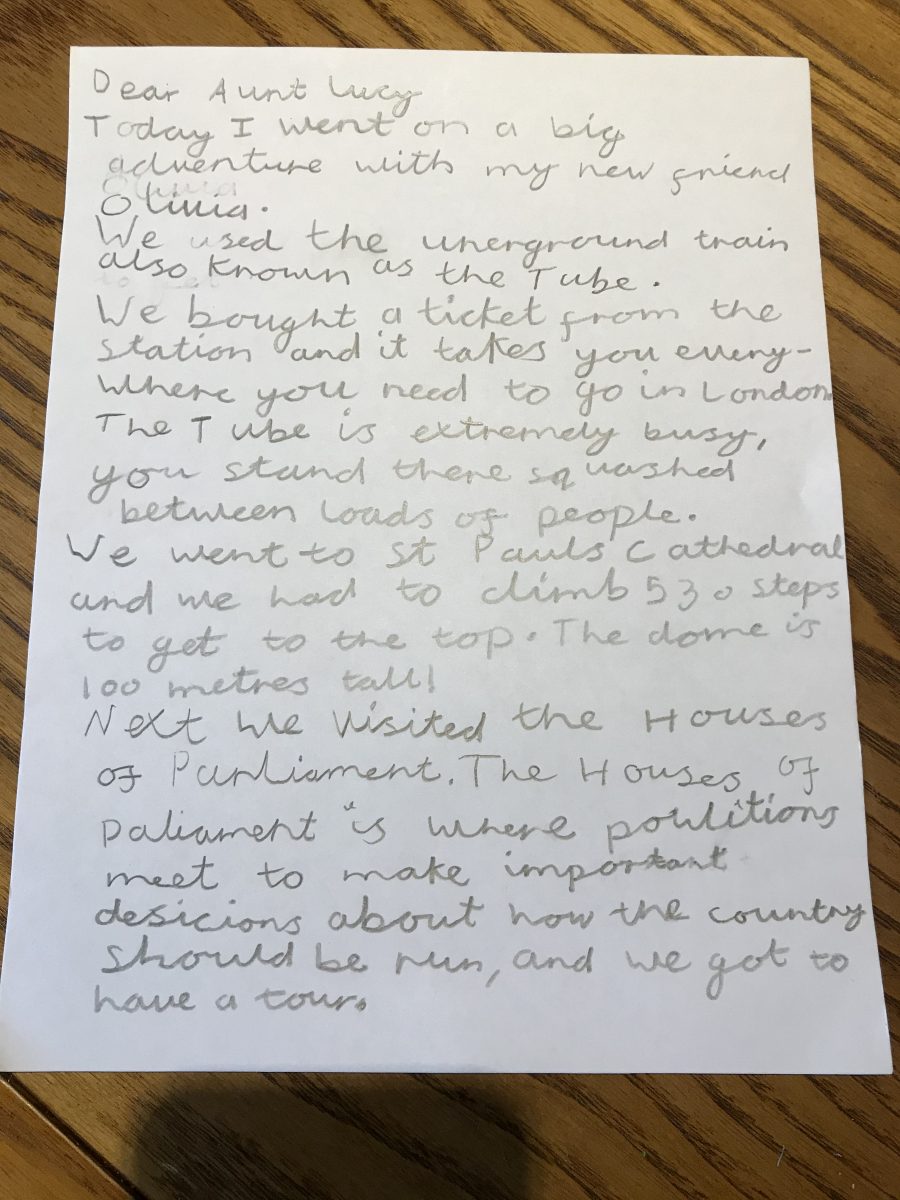 Dear Aunt Lucy
Today I went on a big
adventure with my new friend
Olivia.
We used the unerground train
also known as the Tube.
We bought a ticket from the
station and it takes you every-
where you need to go in London
The Tube is extremely busy,
you stand there squashed
between loads of people.
We went to St Pauls Cathedral
and we had to climb 530 steps
to get to the top. The dome is
100 metres tall!
Next we visited the Houses
of Parliament. The Houses of
Paliament is where poulitions
meet to make important
desicions about how the country
should be run, and we got to
have a tour.